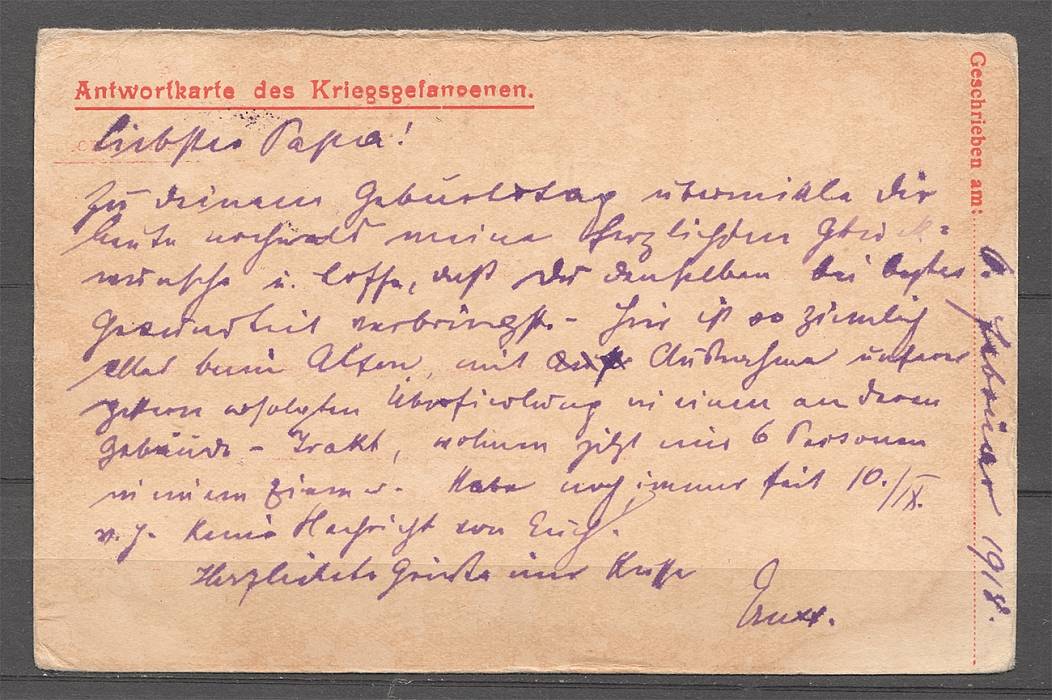 Antwortkarte des Kriegsgefangenen.
Geschrieben am:
6. Februar 1918.
Liebster Papa!
Zu deinem Geburtstag übermittle Dir
heute nochmals meine herzlichsten Glück-
wünsche u. hoffe, daß Du denselben bei bester
Gesundheit verbringst. - Hier ist so ziemlich
alles beim Alten, mit Ausnahme unserer
gestern erfolgten Übersiedlung in einen anderen
Gebäude - Trakt, wohnen jetzt nur 6 Personen
in einem Zimmer. Habe noch immer seit 10./IX.
v. J. keine Nachricht von Euch.
Herzlichste Grüße und Küsse